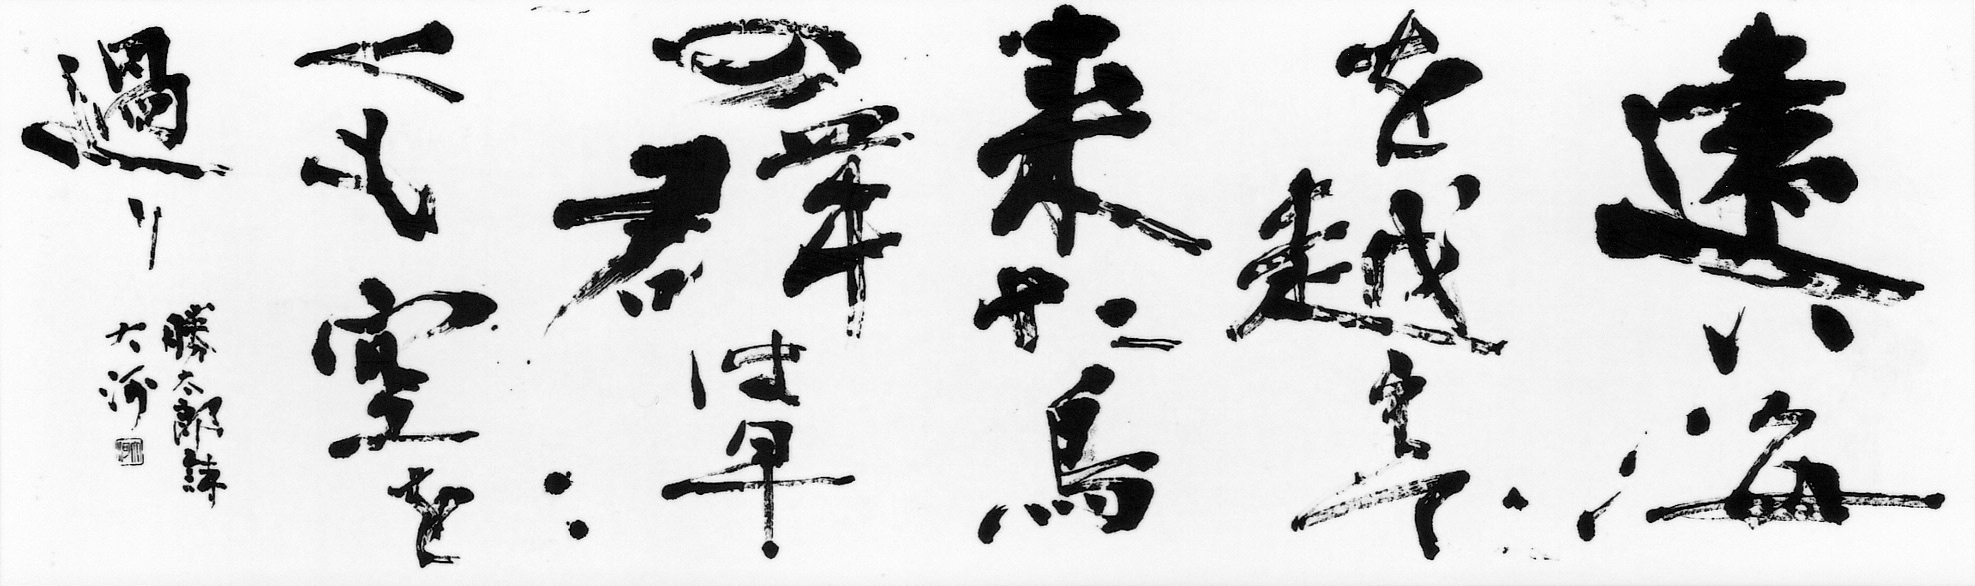 遠い海
を越えて
来た鳥
の群は早
くも空を
過り
勝太郎詠
大河